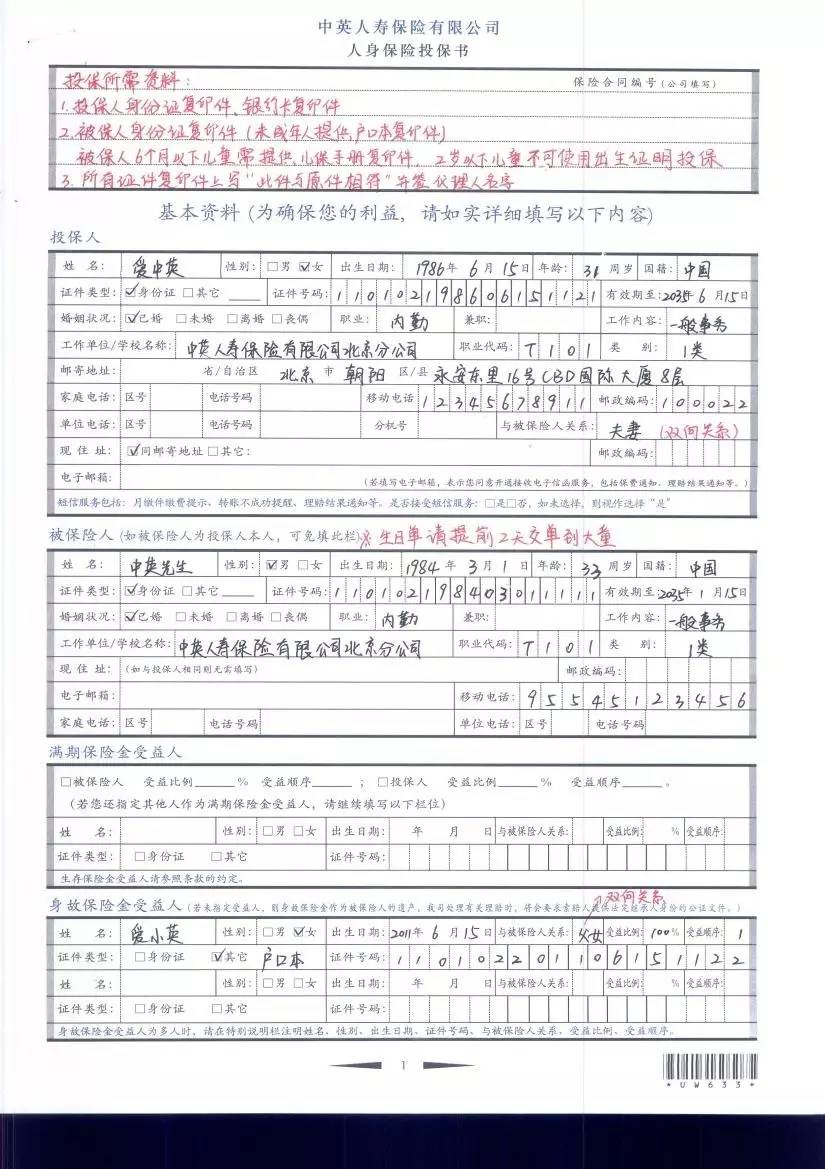 中英人寿保险有限公司
人身保险投保书
投保所需资料：
保险合同编号(公司填写)
1.投保人身份证复印件、银行卡复印件
2.被保人身份证复印件(未成年人提供户口本复印件)
被保人6个月以下儿童需提供儿保手册复印件，2岁以下儿童不可使用出生证明投保
3.所有证件复印件上写"此件与原件相符"并签代理人名字
基本资料(为确保您的利益，请如实详细填写以下内容)
投保人
姓 名: 爱中英 性别: □男 ☑女 出生日期: 1986年 6月 15日 年龄: 31 周岁 国籍: 中国
证件类型: ☑身份证 □其它____ 证件号码: 110102198606151121 有效期至:2035年6月15日
婚姻状况: ☑已婚 □未婚 □离婚 □丧偶 职业: 内勤 兼职: 工作内容: 一般事务
工作单位/学校名称: 中英人寿保险有限公司北京分公司 职业代码: T101 类 别: 1类
邮寄地址: 省/自治区 北京 市 朝阳 区/县 永安东里16号CBD国际大厦8层
家庭电话: 区号 电话号码 移动电话: 12345678911 邮政编码: 100022
单位电话: 区号 电话号码 分机号 与被保险人关系: 夫妻 (双向关系)
现 住 址: ☑同邮寄地址 □其它: 邮政编码:
电子邮箱: (若填写电子邮箱，表示您同意开通接收电子信函服务，包括保费通知、理赔结果通知等。)
短信服务包括: 月缴件缴费提示、转账不成功提醒、理赔结果通知等。是否接受短信服务: □是□否，如未选择，则视作选择"是"
被保险人 (如被保险人为投保人本人，可免填此栏) ※生日单请提前2天交单到大童
姓 名: 中英先生 性别: ☑男 □女 出生日期: 1984年 3月 1日 年龄: 33 周岁 国籍: 中国
证件类型: ☑身份证 □其它____ 证件号码: 110102198403011111 有效期至2035年1月15日
婚姻状况: ☑已婚 □未婚 □离婚 □丧偶 职业: 内勤 兼职: 工作内容: 一般事务
工作单位/学校名称: 中英人寿保险有限公司北京分公司 职业代码: T101 类 别: 1类
现 住 址: (如与投保人相同则无需填写) 邮政编码:
电子邮箱: 移动电话: 95545123456
家庭电话: 区号 电话号码 单位电话: 区号 电话号码
满期保险金受益人
□被保险人 受益比例____% 受益顺序____ ; □投保人 受益比例____% 受益顺序____。
(若您还指定其他人作为满期保险金受益人，请继续填写以下栏位)
姓 名: 性别: □男 □女 出生日期: 年 月 日 与被保险人关系: 受益比例: % 受益顺序:
证件类型: □身份证 □其它 证件号码:
生存保险金受益人请参照条款的约定。
双向关系
身故保险金受益人 (若未指定受益人，则身故保险金作为被保险人的遗产，我司处理有关理赔时，将会要求索赔人提供法定继承人身份的公证文件。)
姓 名: 爱小英 性别: □男 ☑女 出生日期: 2011年 6月 15日 与被保险人关系: 父女 受益比例: 100% 受益顺序: 1
证件类型: □身份证 ☑其它 户口本 证件号码: 110102201106151122
姓 名: 性别: □男 □女 出生日期: 年 月 日 与被保险人关系: 受益比例: % 受益顺序:
证件类型: □身份证 □其它 证件号码:
身故保险金受益人为多人时，请在特别说明栏注明姓名、性别、出生日期、证件号码、与被保险人关系、受益比例、受益顺序。
1
*UW633*